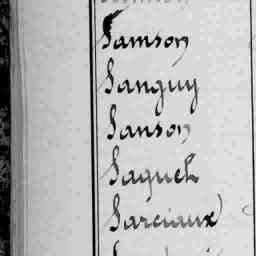 Samson
Sanguy
Sanson
Saquel
Sarciaux